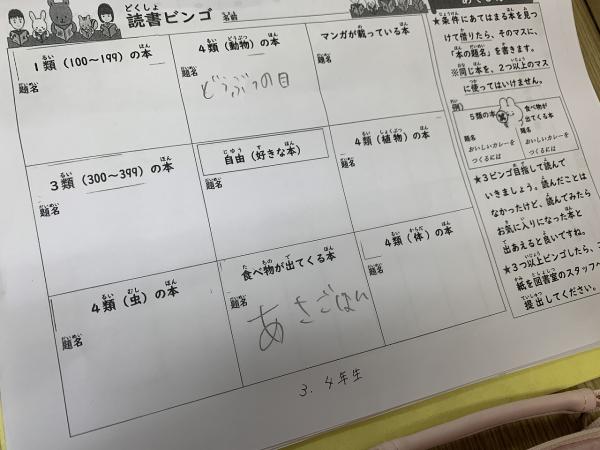 どくしょ
読書ビンゴ
名前
1類（100～199）の本
題名
4類（動物）の本
題名
どうぶつの目
マンガが載っている本
題名
3類（300～399）の本
題名
自由（好きな本）
題名
4類（植物）の本
題名
4類（虫）の本
題名
食べ物が出てくる本
題名
あさごはん
4類（体）の本
題名
3. 4年生
★条件にあてはまる本を見つ
けて借りたら、そのマスに、
「本の題名」を書きます。
※同じ本を、2つ以上のマス
に使ってはいけません。
例）
5類の本
題名
おいしいカレーを
つくるには
食べ物が
出てくる本
題名
おいしいカレーを
つくるには
★3ビンゴ目指して読んで
いきましょう。読んだことは
なかったけど、読んでみたら
お気に入りになった本と
出あえると良いですね。
★3つ以上ビンゴしたら、
紙を図書室のスタッフへ
提出してください。